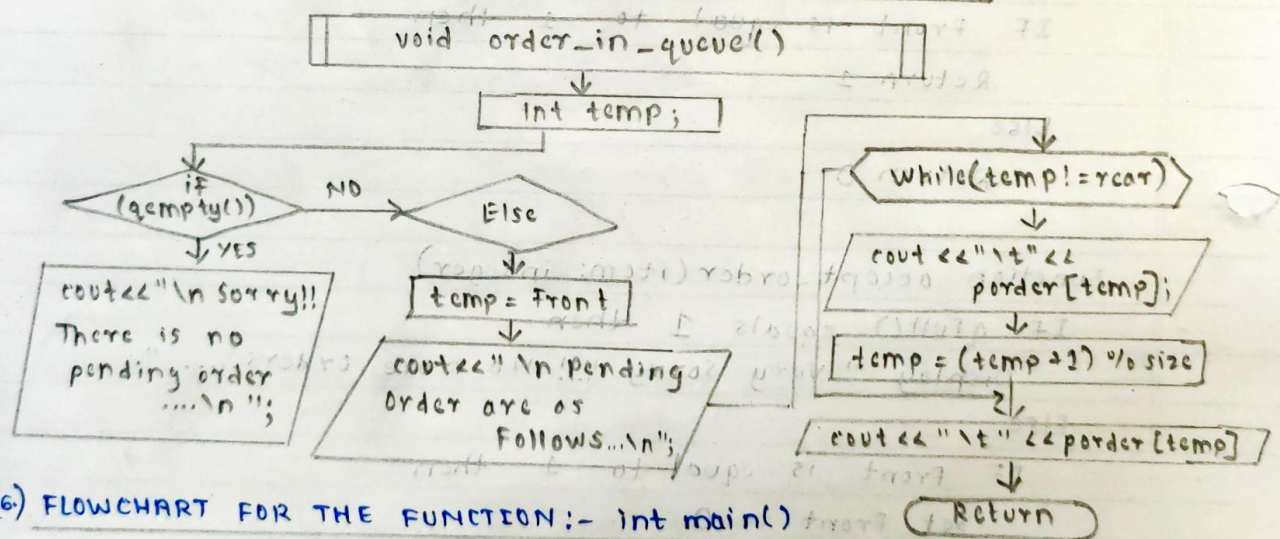 void order_in_queue()
int temp;
if
(qempty())
NO
YES
Else
cout<<"\n Sorry!!
There is no
pending order
....\n ";
temp = Front
cout<<" \n pending
order are as
Follows...\n";
while(temp!=rear)
cout <<"\t"<<
porder[temp];
temp = (temp+1) % size
cout << "\t" << porder [temp]
Return
6.) FLOWCHART FOR THE FUNCTION:- int main()